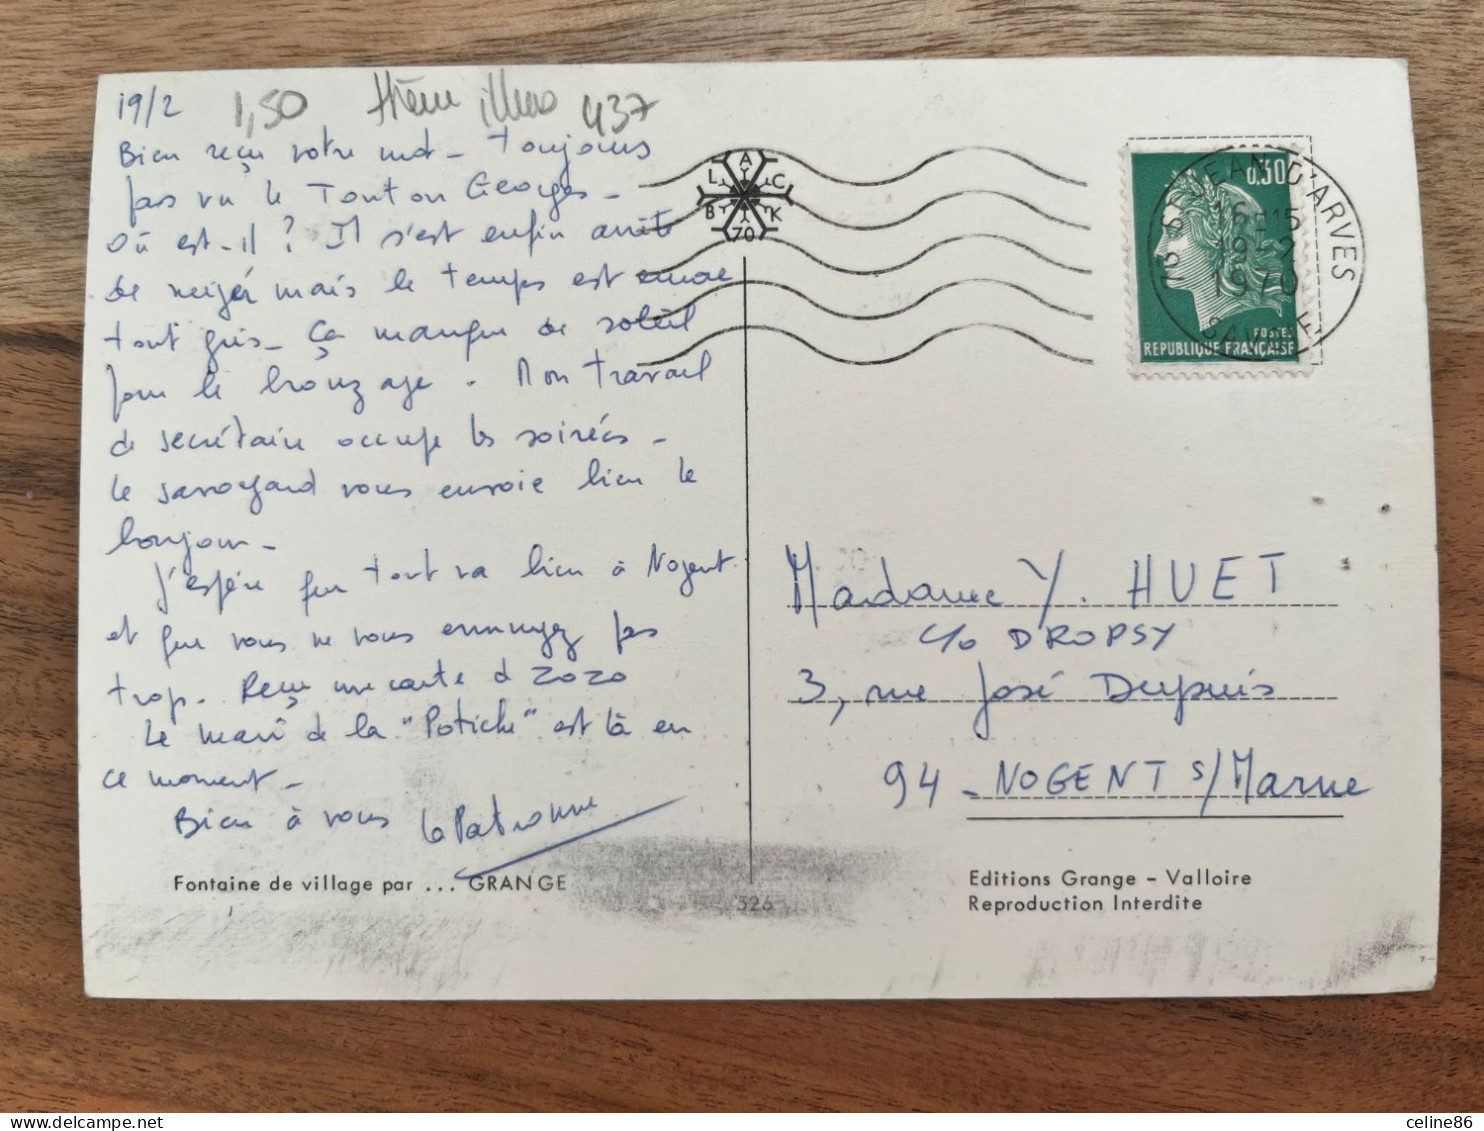 19/2 1,50 437
Bien reçu votre mot - toujours
pas vu le Tonton Georges -
où est-il ? Il s'est enfin arrêté
de neiger mais le temps est encore
tout gris - ça manque de soleil
pour le bronzage . Mon travail
de secrétaire occupe les soirées -
le savoyard vous envoie bien le
bonjour -
J'espère que tout va bien à Nogent
et que vous ne vous ennuyez pas
trop. Reçu une carte d ZOZO
Le mari de la "Potiche" est là en
ce moment -
Bien à vous la Patronne
Fontaine de village par ... GRANGE
326
BLACK
70
0,30
POSTES
REPUBLIQUE FRANÇAISE
ST JEAN D'ARVES
16 H 15
19-2
1970
SAVOIE
Madame Y. HUET
c/o DROPSY
3, rue José Dupuis
94 - NOGENT s/Marne
Editions Grange - Valloire
Reproduction Interdite
delcampe.net
celine86